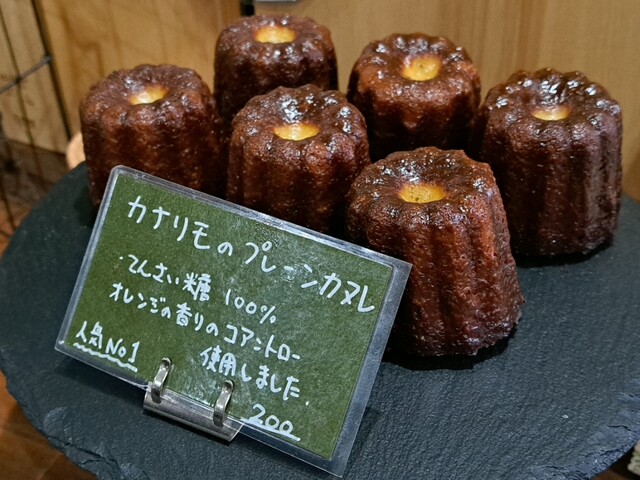 カナリモのプレーンカヌレ
・てんさい糖 100%
オレンジの香りのコアントロー
使用しました.
人気No1
200